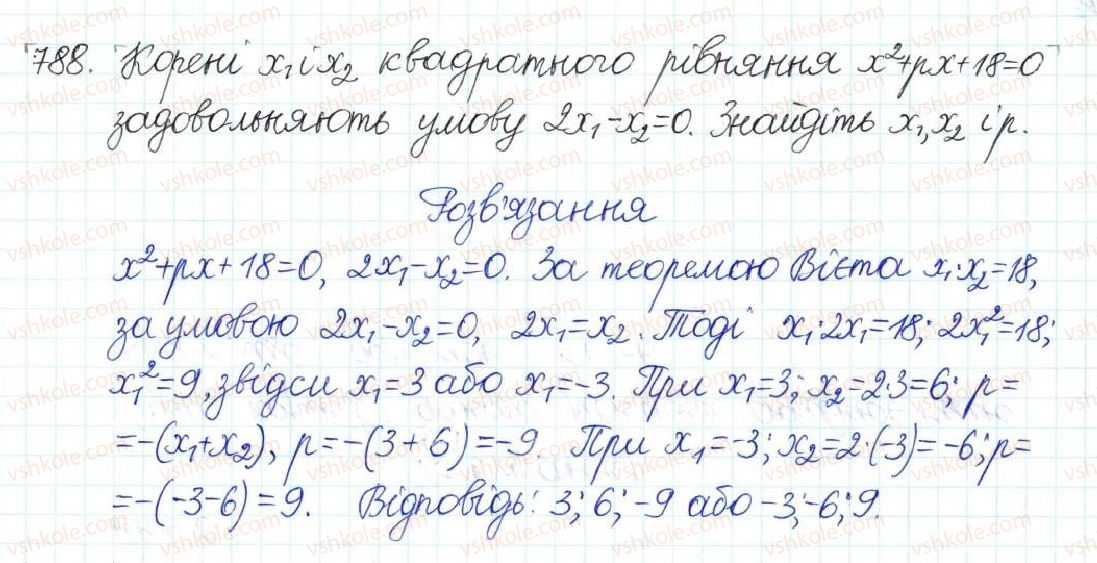 788. Корені x₁ і x₂ квадратного рівняння x²+px+18=0
задовольняють умову 2x₁-x₂=0. Знайдіть x₁, x₂ і p.
Розв'язання
x²+px+18=0, 2x₁-x₂=0. За теоремою Вієта x₁·x₂=18,
за умовою 2x₁-x₂=0, 2x₁=x₂. Тоді x₁·2x₁=18; 2x₁²=18;
x₁²=9, звідси x₁=3 або x₁=-3. При x₁=3; x₂=2·3=6; p=
=-(x₁+x₂), p=-(3+6)=-9. При x₁=-3; x₂=2·(-3)=-6; p=
=-(-3-6)=9. Відповідь: 3; 6; -9 або -3; -6; 9.